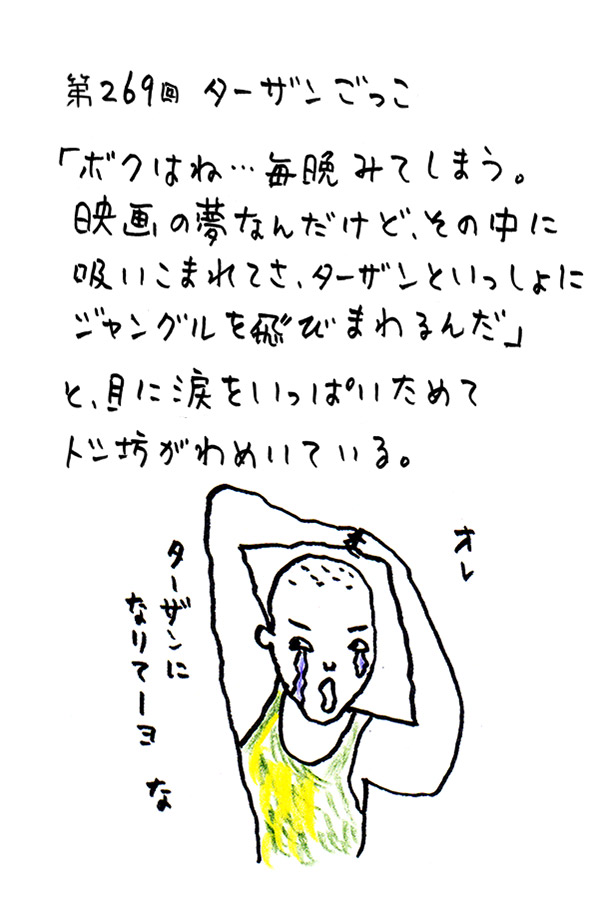 第269回 ターザンごっこ
「ボクはね…毎晩みてしまう。
映画の夢なんだけど、その中に
吸いこまれてさ、ターザンといっしょに
ジャングルを飛びまわるんだ」
と、目に涙をいっぱいためて
トン坊がわめいている。
オレ
ターザンに
なりてーヨ な